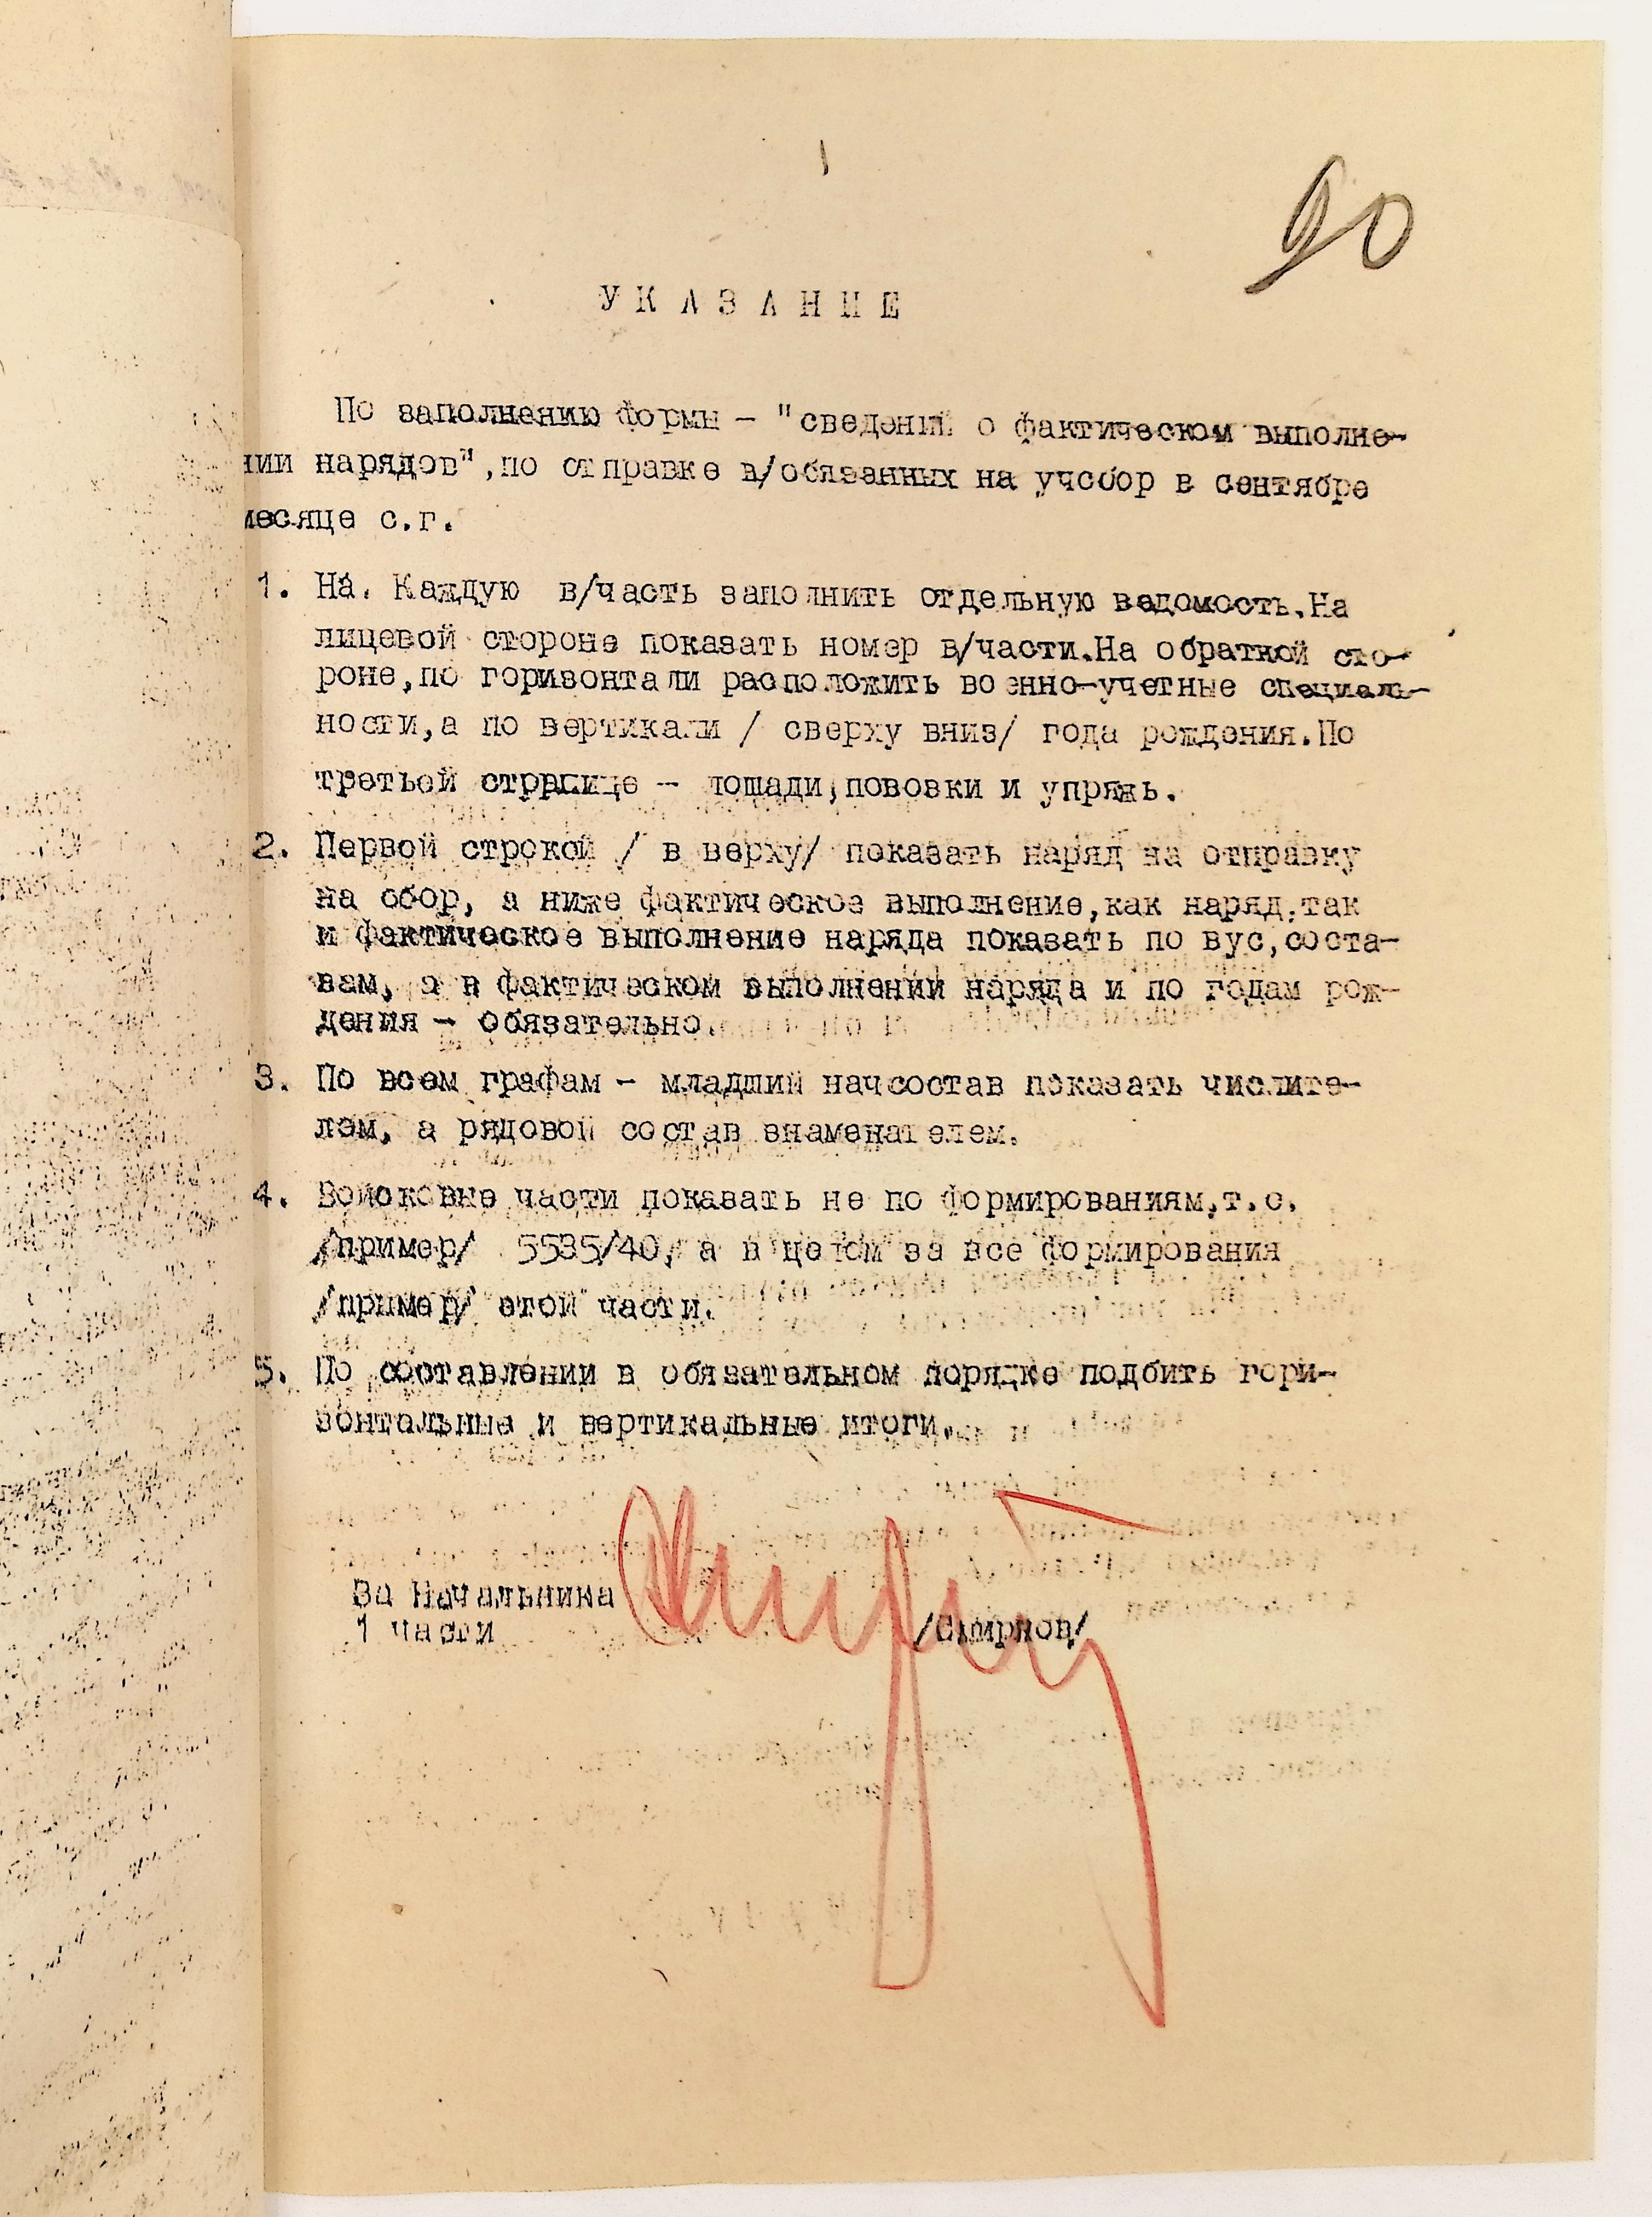 90
УКАЗАНИЕ
По заполнению формы - "сведений о фактическом выполне-
нии нарядов", по отправке в/обязанных на учсбор в сентябре
месяце с.г.
1. На. Каждую в/часть заполнить отдельную ведомость.На
лицевой стороне показать номер в/части.На обратной сто-
роне,по горизонтали расположить военно-учетные специаль-
ности,а по вертикали / сверху вниз/ года рождения.По
третьей странице - лошади,повозки и упряжь.
2. Первой строкой / в верху/ показать наряд на отправку
на сбор, а ниже фактическое выполнение,как наряд.так
и фактическое выполнение наряда показать по вус,соста-
вам, а в фактическом выполнении наряда и по годам рож-
дения - обязательно.
3. По всем графам - младший начсостав показать числите-
лем, а рядовой состав знаменателем.
4. Войсковые части показать не по формированиям,т.е.
/пример/ 5535/40, а в целом за все формирования
/пример/ этой части.
5. По составлении в обязательном порядке подбить гори-
зонтальные и вертикальные итоги.
За Начальника
1 части /Смирнов/